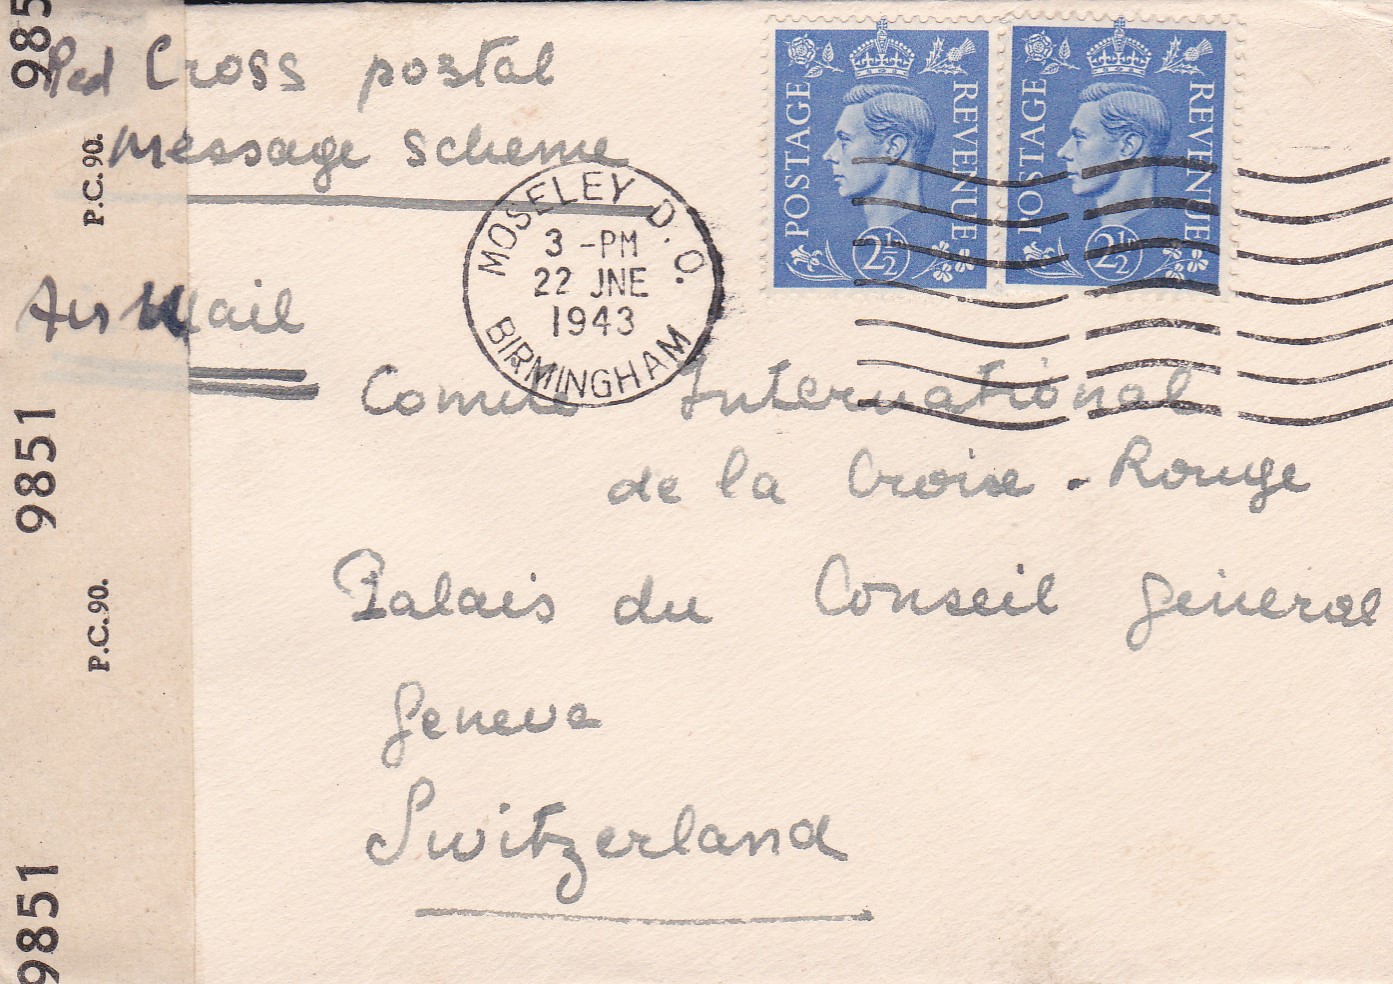 Red Cross postal
message scheme
Air Mail
POSTAGE REVENUE
2½
POSTAGE REVENUE
2½
MOSELEY D.O.
3 -PM
22 JNE
1943
BIRMINGHAM
Comité International
de la Croixe - Rouge
Palais du Conseil Géneral
Geneva
Switzerland
985
P.C.90.
9851
P.C.90.
9851